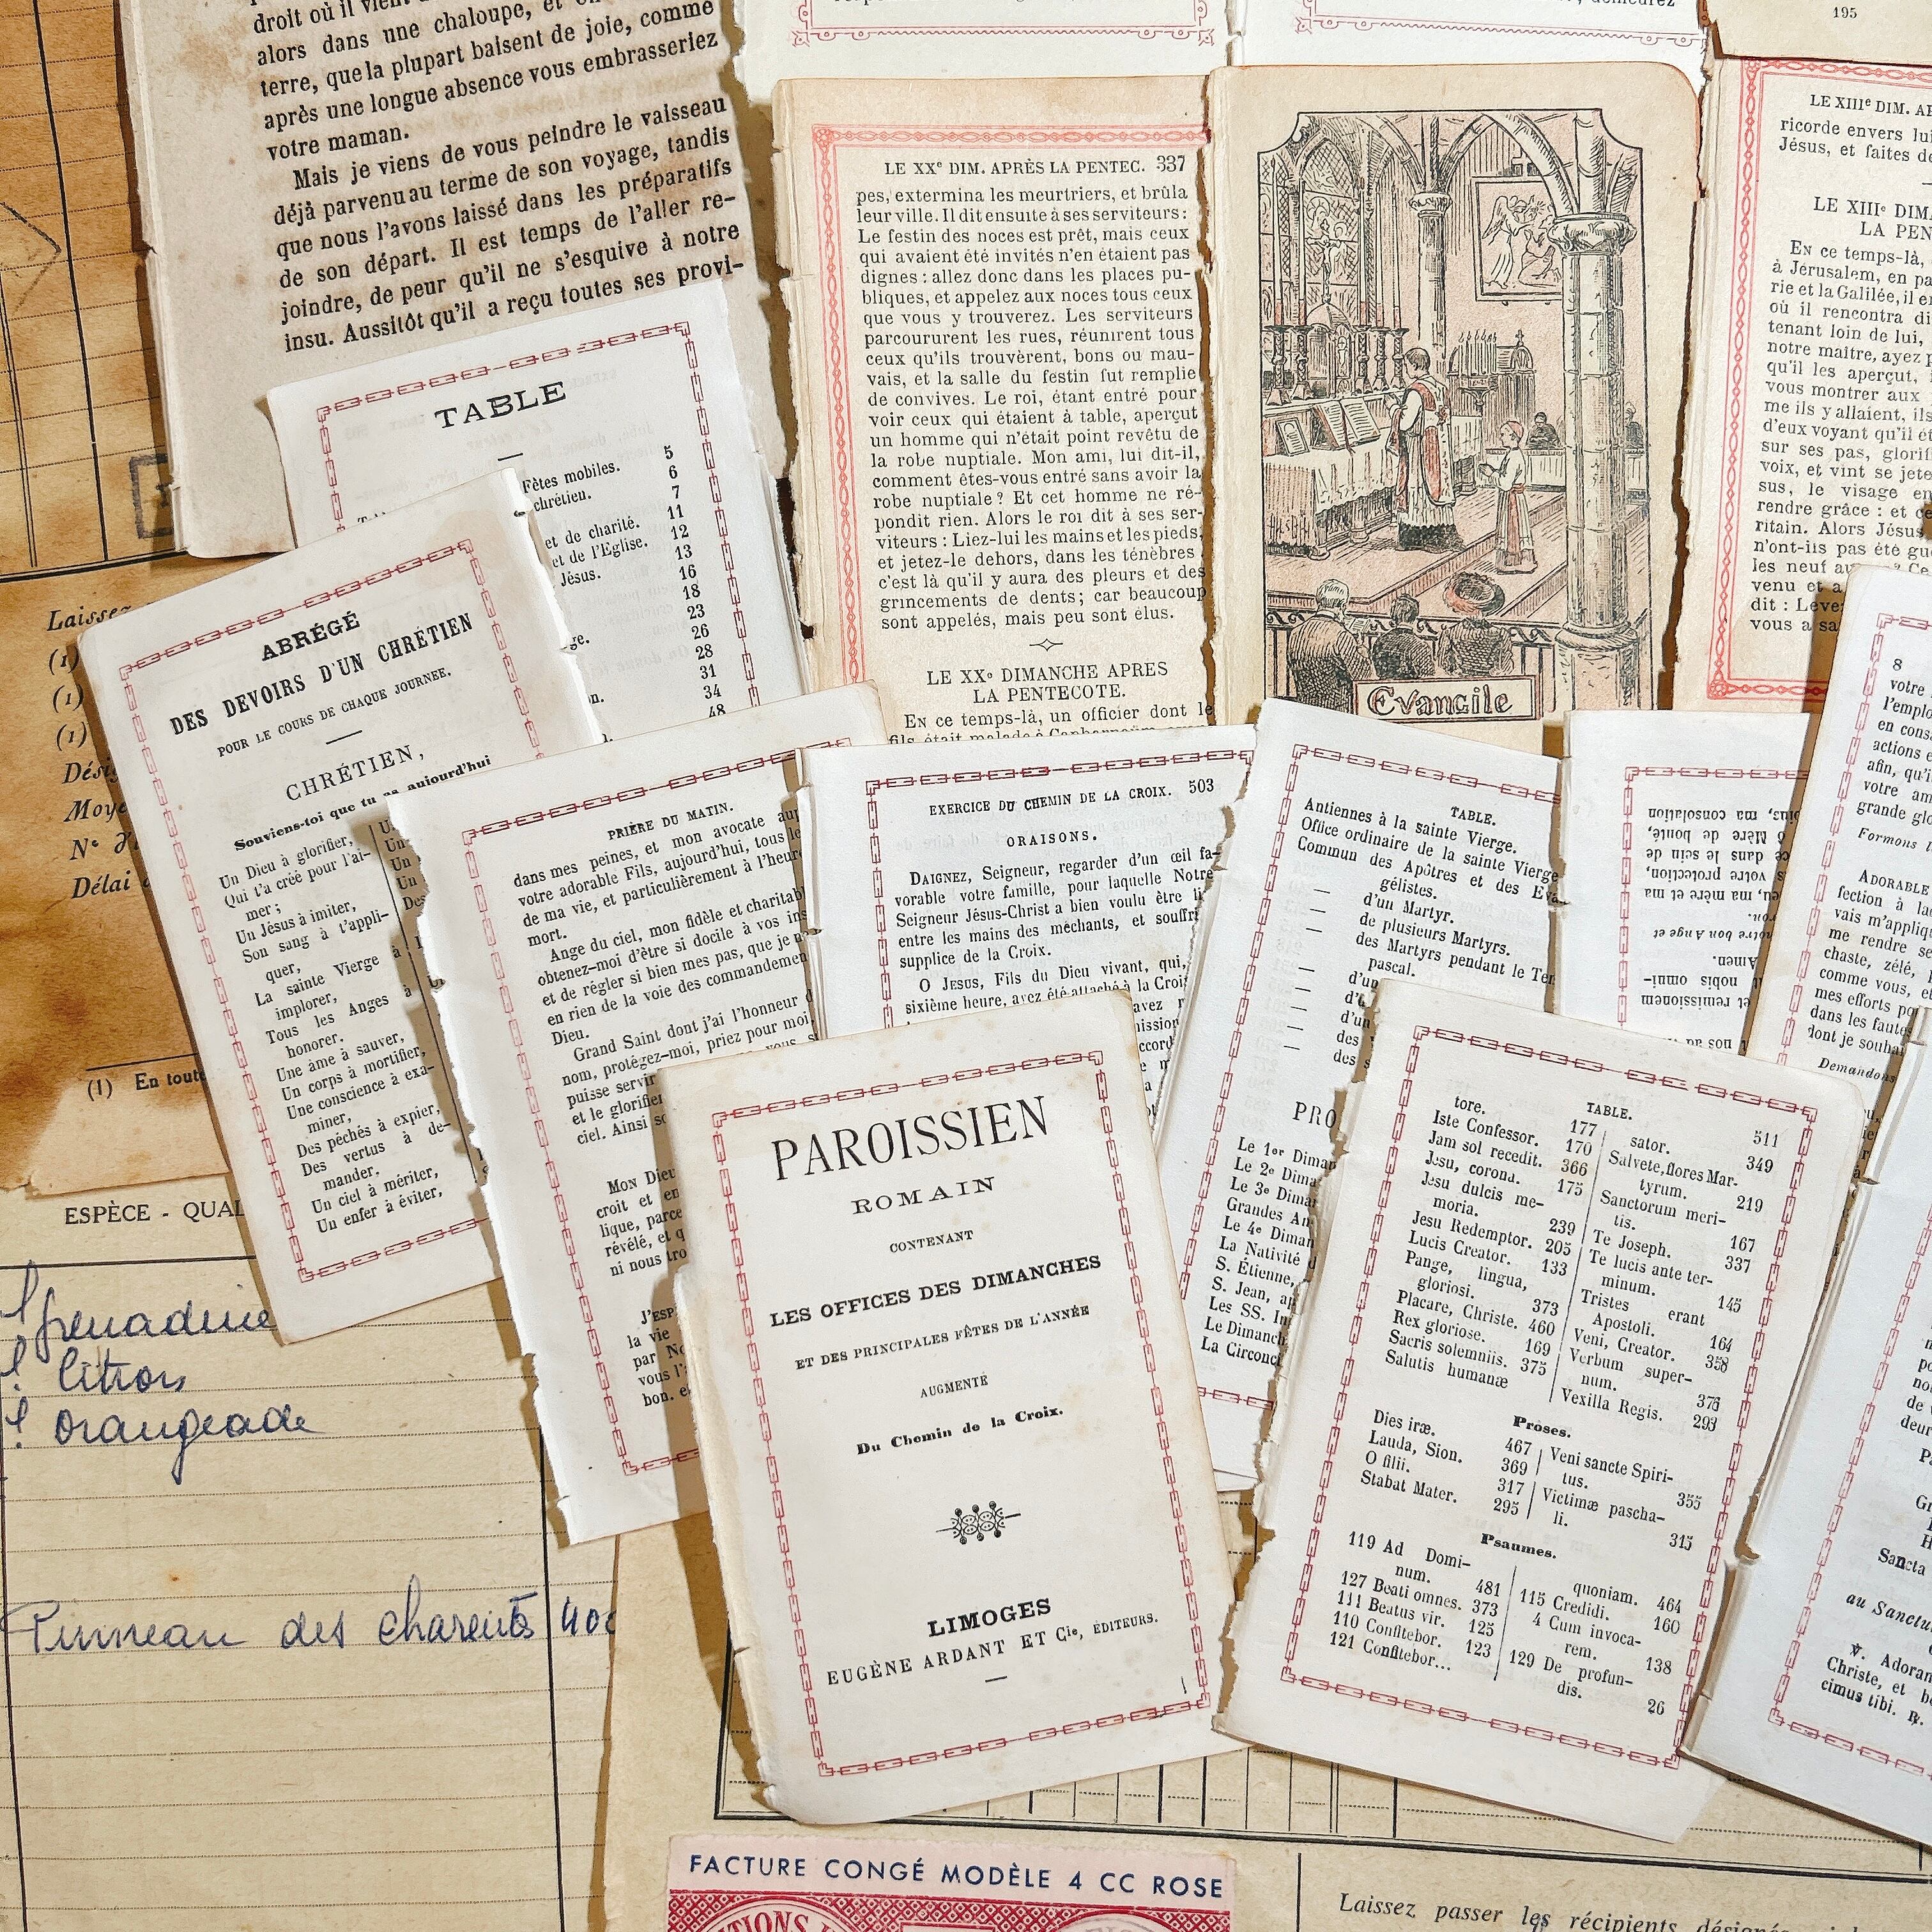 droit où il vient
alors dans une chaloupe, et
terre, que la plupart baisent de joie, comme
après une longue absence vous embrasseriez
votre maman.
Mais je viens de vous peindre le vaisseau
déjà parvenu au terme de son voyage, tandis
que nous l'avons laissé dans les préparatifs
de son départ. Il est temps de l'aller re-
joindre, de peur qu'il ne s'esquive à notre
insu. Aussitôt qu'il a reçu toutes ses provi-
demeurez
195
LE XXe DIM. APRÈS LA PENTEC. 337
pes, extermina les meurtriers, et brûla
leur ville. Il dit ensuite à ses serviteurs :
Le festin des noces est prêt, mais ceux
qui avaient été invités n'en étaient pas
dignes : allez donc dans les places pu-
bliques, et appelez aux noces tous ceux
que vous y trouverez. Les serviteurs
parcoururent les rues, réunirent tous
ceux qu'ils trouvèrent, bons ou mau-
vais, et la salle du festin fut remplie
de convives. Le roi, étant entré pour
voir ceux qui étaient à table, aperçut
un homme qui n'était point revêtu de
la robe nuptiale. Mon ami, lui dit-il,
comment êtes-vous entré sans avoir la
robe nuptiale ? Et cet homme ne ré-
pondit rien. Alors le roi dit à ses ser-
viteurs : Liez-lui les mains et les pieds
et jetez-le dehors, dans les ténèbres
c'est là qu'il y aura des pleurs et des
grincements de dents ; car beaucoup
sont appelés, mais peu sont élus.
LE XXe DIMANCHE APRES
LA PENTECOTE.
En ce temps-là, un officier dont le
fils était malade à Capharnaüm
Evangile
LE XIIIe DIM. AP
ricorde envers lui
Jésus, et faites de
LE XIIIe DIMA
LA PEN
En ce temps-là,
à Jérusalem, en pa
rie et la Galilée, il e
où il rencontra di
tenant loin de lui,
notre maître, ayez p
qu'il les aperçut,
vous montrer aux
me ils y allaient, ils
d'eux voyant qu'il ét
sur ses pas, glorif
voix, et vint se jete
sus, le visage en
rendre grâce : et ce
ritain. Alors Jésus
n'ont-ils pas été gu
les neuf
venu et a
dit : Leve
vous a sa
TABLE
Fêtes mobiles. 5
chrétien. 6
7
et de charité. 11
et de l'Eglise. 12
Jésus. 13
16
18
23
26
28
31
34
48
ABRÉGÉ
DES DEVOIRS D'UN CHRÉTIEN
POUR LE COURS DE CHAQUE JOURNEE.
CHRÉTIEN,
Souviens-toi que tu as aujourd'hui
Un Dieu à glorifier,
Qui t'a créé pour l'ai-
mer ;
Un Jésus à imiter,
Son sang à t'appli-
quer,
La sainte Vierge à
implorer,
Tous les Anges à
honorer.
Une âme à sauver,
Un corps à mortifier,
Une conscience à exa-
miner,
Des péchés à expier,
Des vertus à de-
mander.
Un ciel à mériter,
Un enfer à éviter,
Laissez
(1)
(1)
(1)
Désig
Moye
N° d'
Délai
(1) En tout
PRIÈRE DU MATIN.
dans mes peines, et mon avocate au
votre adorable Fils, aujourd'hui, tous le
de ma vie, et particulièrement à l'heure
mort.
Ange du ciel, mon fidèle et charitab
obtenez-moi d'être si docile à vos ins
et de régler si bien mes pas, que je n
en rien de la voie des commandemen
Dieu.
Grand Saint dont j'ai l'honneur d
nom, protégez-moi, priez pour moi
puisse servir
et le glorifier
ciel. Ainsi so
Mon Dieu
croit et en
lique, parce
révélé, et q
ni nous tro
J'esp
la vie
par No
vous l'
bon. e
EXERCICE DU CHEMIN DE LA CROIX. 503
ORAISONS.
Daignez, Seigneur, regarder d'un œil fa-
vorable votre famille, pour laquelle Notre
Seigneur Jésus-Christ a bien voulu être li
entre les mains des méchants, et souffri
supplice de la Croix.
O Jesus, Fils du Dieu vivant, qui,
sixième heure, avez été attaché à la Croix
TABLE.
Antiennes à la sainte Vierge.
Office ordinaire de la sainte Vierge
Commun des Apôtres et des Eva
gélistes.
— d'un Martyr.
— de plusieurs Martyrs.
— des Martyrs pendant le Tem
pascal.
— d'un
— d'u
— d'un
— des
— des s
PRO
Le 1er Diman
Le 2e Dima
Le 3e Dimar
Grandes An
Le 4e Diman
La Nativité d
S. Étienne,
S. Jean, ap
Les SS. In
Le Dimanch
La Circonci
ma consolation
ô Mère de bonté,
dans le sein de
votre protection,
ma mère et ma
notre bon Ange et
Amen.
nobis omni-
et remissionem
8
votre
l'emplo
en cons
actions e
afin, qu'i
votre am
grande glo
Formons
Adorable
fection à la
vais m'appliqu
me rendre se
chaste, zélé,
comme vous, e
mes efforts po
dans les faute
dont je souhai
Demandons
PAROISSIEN
ROMAIN
CONTENANT
LES OFFICES DES DIMANCHES
ET DES PRINCIPALES FÊTES DE L'ANNÉE
AUGMENTÉ
Du Chemin de la Croix.
LIMOGES
EUGÈNE ARDANT ET Cie, ÉDITEURS.
TABLE. 511
tore. 177
Iste Confessor. 170
Jam sol recedit. 366
Jesu, corona. 175
Jesu dulcis me-
moria. 239
Jesu Redemptor. 205
Lucis Creator. 133
Pange, lingua,
gloriosi. 373
Placare, Christe. 460
Rex gloriose. 169
Sacris solemniis. 375
Salutis humanæ
sator. 349
Salvete, flores Mar-
tyrum. 219
Sanctorum meri-
tis. 167
Te Joseph. 337
Te lucis ante ter-
minum. 145
Tristes erant
Apostoli. 164
Veni, Creator. 358
Verbum super-
num. 373
Vexilla Regis. 293
Proses.
Dies iræ. 467
Lauda, Sion. 369
O filii. 317
Stabat Mater. 295
Veni sancte Spiri-
tus. 355
Victimæ pascha-
li. 315
Psaumes.
119 Ad Domi-
num. 481
127 Beati omnes. 373
111 Beatus vir. 125
110 Confitebor. 123
121 Confitebor...
quoniam. 464
115 Credidi. 160
4 Cum invoca-
rem. 138
129 De profun-
dis. 26
Sancta
au Sanctu
℣. Adoran
Christe, et b
cimus tibi. ℟.
ESPÈCE - QUAL
grenadine
citron
orangeade
Pinneau des charentes 400
FACTURE CONGÉ MODÈLE 4 CC ROSE
Laissez passer les récipients désignés